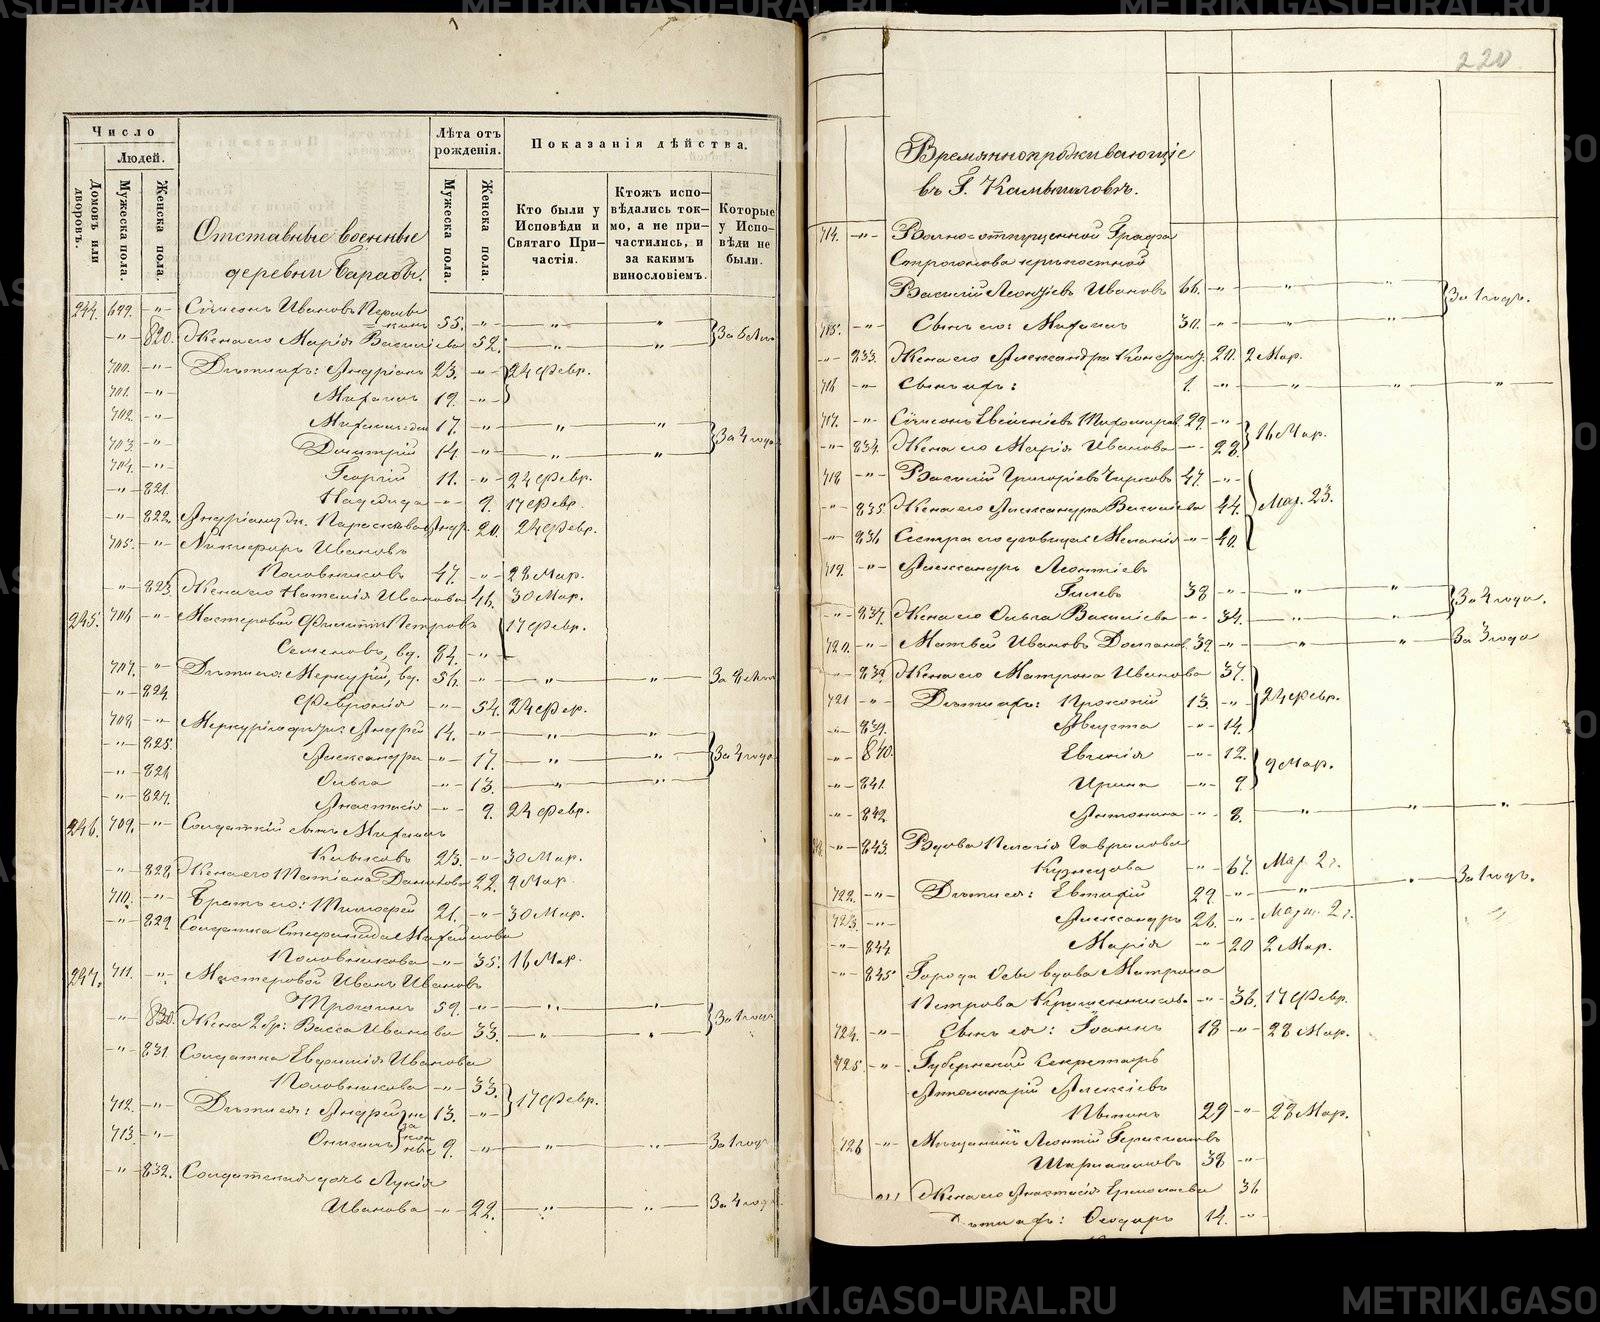 METRIKI.GASO-URAL.RU
Число
Людей.
Домовъ или дворовъ.
Мужеска пола.
Женска пола.
Отставные военные
деревни
Лѣта отъ рожденія.
Мужеска пола.
Женска пола.
Показанія дѣйства.
Кто были у Исповѣди и Святаго При-частія.
Ктожъ испо-вѣдались ток-мо, а не при-частились, и за какимъ винословіемъ.
Которые у Испо-вѣди не были.
244. 699. -"- Симеонъ Ивановъ
55. -"- " "
-"- 820. Жена его Марія 52. " " За 6 лѣт
700. -"- Дѣти ихъ: Андріанъ 23. -"- 24 Февр.
701. -"- Михаилъ 19. -"-
702. -"- 17. -"- " "
703. -"- Димитрій 14. -"- " " За 4 года
704. -"- Георгій 11. -"- 24 Февр.
-"- 821. Надежда -"- 9. 17 Февр.
-"- 822. Андріана ж. Параскева Андр. 20. 24 Февр.
705. -"- Никифоръ Ивановъ
Половниковъ 47. -"- 28 Мар.
-"- 823. Жена его Наталія Иванова 46. 30 Мар.
245. 706 -"- Мастеровой Филиппъ Петровъ 17 Февр.
Семеновъ, вд. 84. -"-
707. -"- Дѣти его: Меркурій, вд. 56. -"- " " За 8 лѣт
-"- 824 Февронія -"- 54. 24 Фев.
708 -"- Меркурія дѣти: Андрей 14. -"- " "
-"- 825. Александра -"- 17. " " За 4 года
-"- 826 Ольга -"- 13. " "
-"- 827. Анастасія -"- 9. 24 Февр.
246. 709. -"- Солдатскій сынъ Михаилъ
23. -"- 30 Мар.
-"- 828. Жена его Татіана 22. 9 Мар.
710. -"- Братъ его: Тимофей 21. -"- 30 Мар.
-"- 829 Солдатка Стефанида Михайлова
Половникова -"- 35. 16 Мар.
247. 711. -"- Мастеровой Иванъ Ивановъ
59. -"- " "
-"- 830. Жена 2 бр: Васса Иванова 33. " " За 1 годъ
-"- 831. Солдатка Евфимія Иванова
Половникова -"- 33.
712. -"- Дѣти ея: Андрей незаконные 13. -"- 17 Февр.
713. -"- 9. -"- " " За 1 годъ
-"- 832. Солдатская дочь Лукія
Иванова -"- 22. " " За 4 года
220
Временнопроживающіе
въ Г. Камышловѣ.
714. -"- Вольно-отпущенной Графа
Строгонова крѣпостной
Василій Леонтіевъ Ивановъ 66. -"- " " За 1 годъ.
715. -"- Сынъ его: Михаилъ 30. -"- " "
-"- 833. Жена его Александра 20. 2 Мар.
716 -"- Сынъ ихъ: 1. -"- " " "
717. -"- Симеонъ 29. -"-
-"- 834. Жена его Марія Иванова 28. 16 Мар.
718 -"- Василій Григоріевъ 47. -"-
-"- 835. Жена его Александра Василіева 44. Мар. 23.
-"- 836 Сестра его вдовица Меланія -"- 40.
719. -"- Александръ Леонтіев
Гилевъ 38 -"- " "
-"- 837. Жена его Ольга Василіева -"- 34. " " За 4 года.
720. -"- Матвѣй Ивановъ 39. -"- " " За 3 года
-"- 838 Жена его Матрона Иванова 37.
721 -"- Дѣти ихъ: Прокопій 13. -"- 24 Февр.
-"- 839. Августа -"- 14.
-"- 840. Евгенія -"- 12.
-"- 841. Ирина -"- 9. 9 Мар.
-"- 842 Антонина -"- 8. " " "
-"- 843. Вдова Пелагія Гаврилова
Кузнецова -"- 67. Мар. 2 г.
722. -"- Дѣти ея: Евтихій 29. -"- " " За 1 годъ.
723. -"- Александръ 26. -"- Март. 2 г.
-"- 844 Марія -"- 20 2 Мар.
-"- 845 Города Осы вдова Матрона
Петрова -"- 36. 17 Февр.
724. -"- Сынъ ея: Іоаннъ 18 -"- 28 Мар.
725. -"- Губернскій секретарь
Апполинарій Алексіевъ
29 -"- 28 Мар.
726 -"- Мѣщанинъ Леонтій Герасимовъ
38 -"-
Жена его Анастасія Ермолаева 36
Дѣти ихъ: Ѳеодоръ 14. -"-